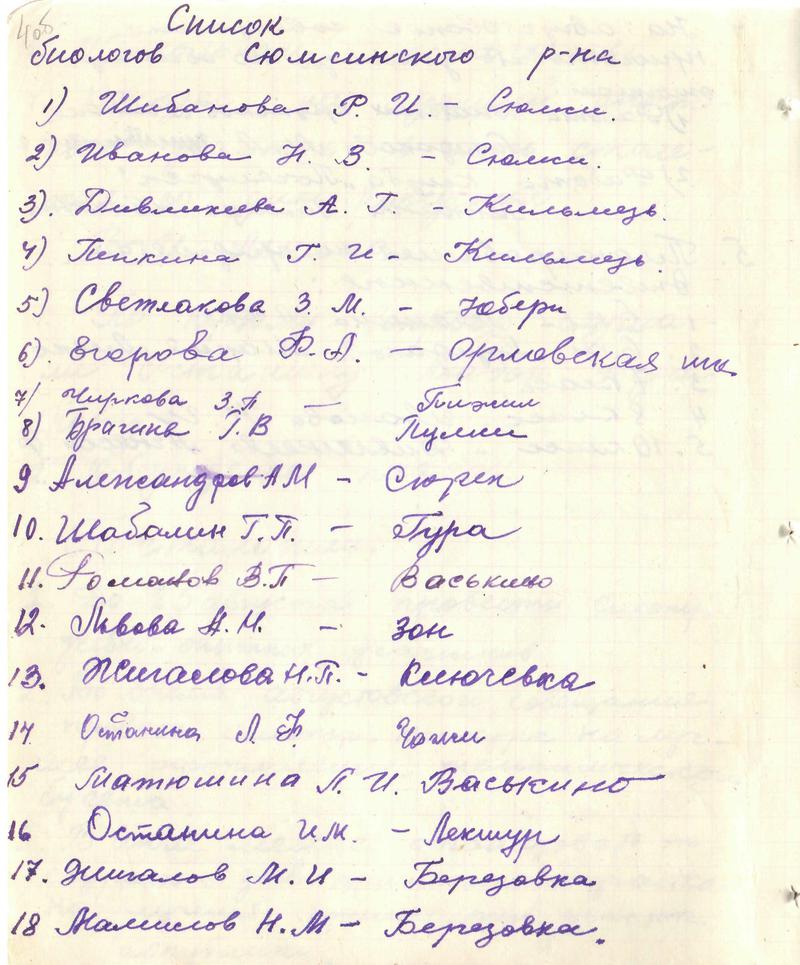 Список
биологов Сюмсинского р-на
1) Шибанова Р. И. – Сюмси.
2) Иванова Н. В – Сюмси.
3). А. Г. – Кильмезь.
4) Пенкина Г И – Кильмезь.
5) Светлакова З М. – Юбери
6). Егорова Ф. А. – Орловская шк
7/ Чиркова З.П – Пижил
8) Брагина Г. В Пумси
9 Александров А М – Сюрек
10. Шабалин Г. П. – Гура
11. Романов В. П – Васькино
12. Львова А. Н. – Зон
13. Жигалова Н. П. – Ключевка
14 Останина Л. Ф. Чажи
15 Матюшина Л. И. Васькино
16 Останина И. М. – Лекшур
17. Жигалов М. И – Березовка
18 Мамилов Н. М – Березовка.